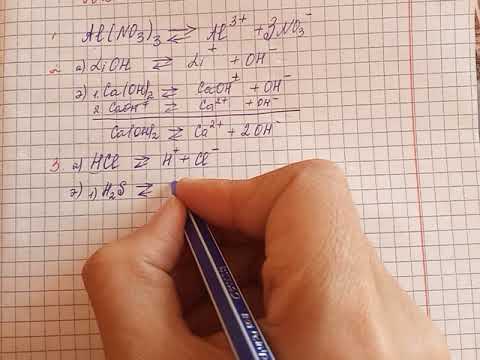 1. Al(NO₃)₃ ⇄ Al³⁺ + 3NO₃⁻
2. a) LiOH ⇄ Li⁺ + OH⁻
2) 1. Ca(OH)₂ ⇄ CaOH⁺ + OH⁻
2 CaOH⁺ ⇄ Ca²⁺ + OH⁻
Ca(OH)₂ ⇄ Ca²⁺ + 2OH⁻
3. a) HCl ⇄ H⁺ + Cl⁻
2) 1) H₂S ⇄